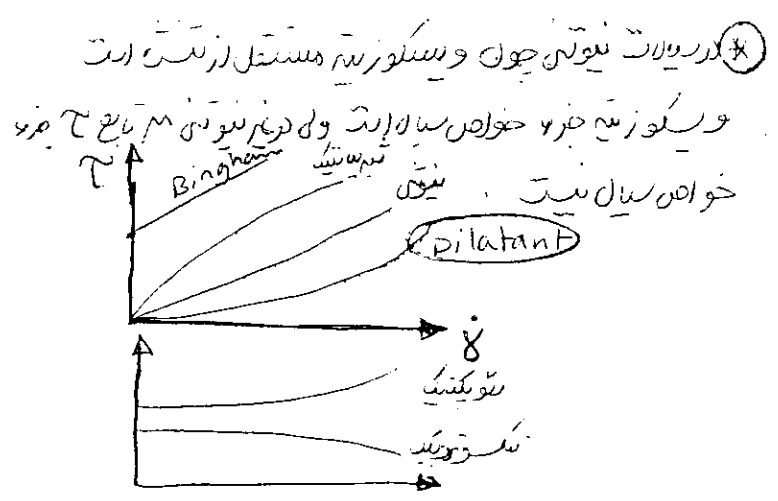 * در سیالات نیوتنی چون ویسکوزیته مستقل از تنش است
ویسکوزیته جزء خواص سیال است ولی در غیر نیوتنی μ تابع τ جزء
خواص سیال نیست.
τ
Bingham
نیوتنی
Dilatant
γ̇
رئوپکتیک
تیکسوتروپیک